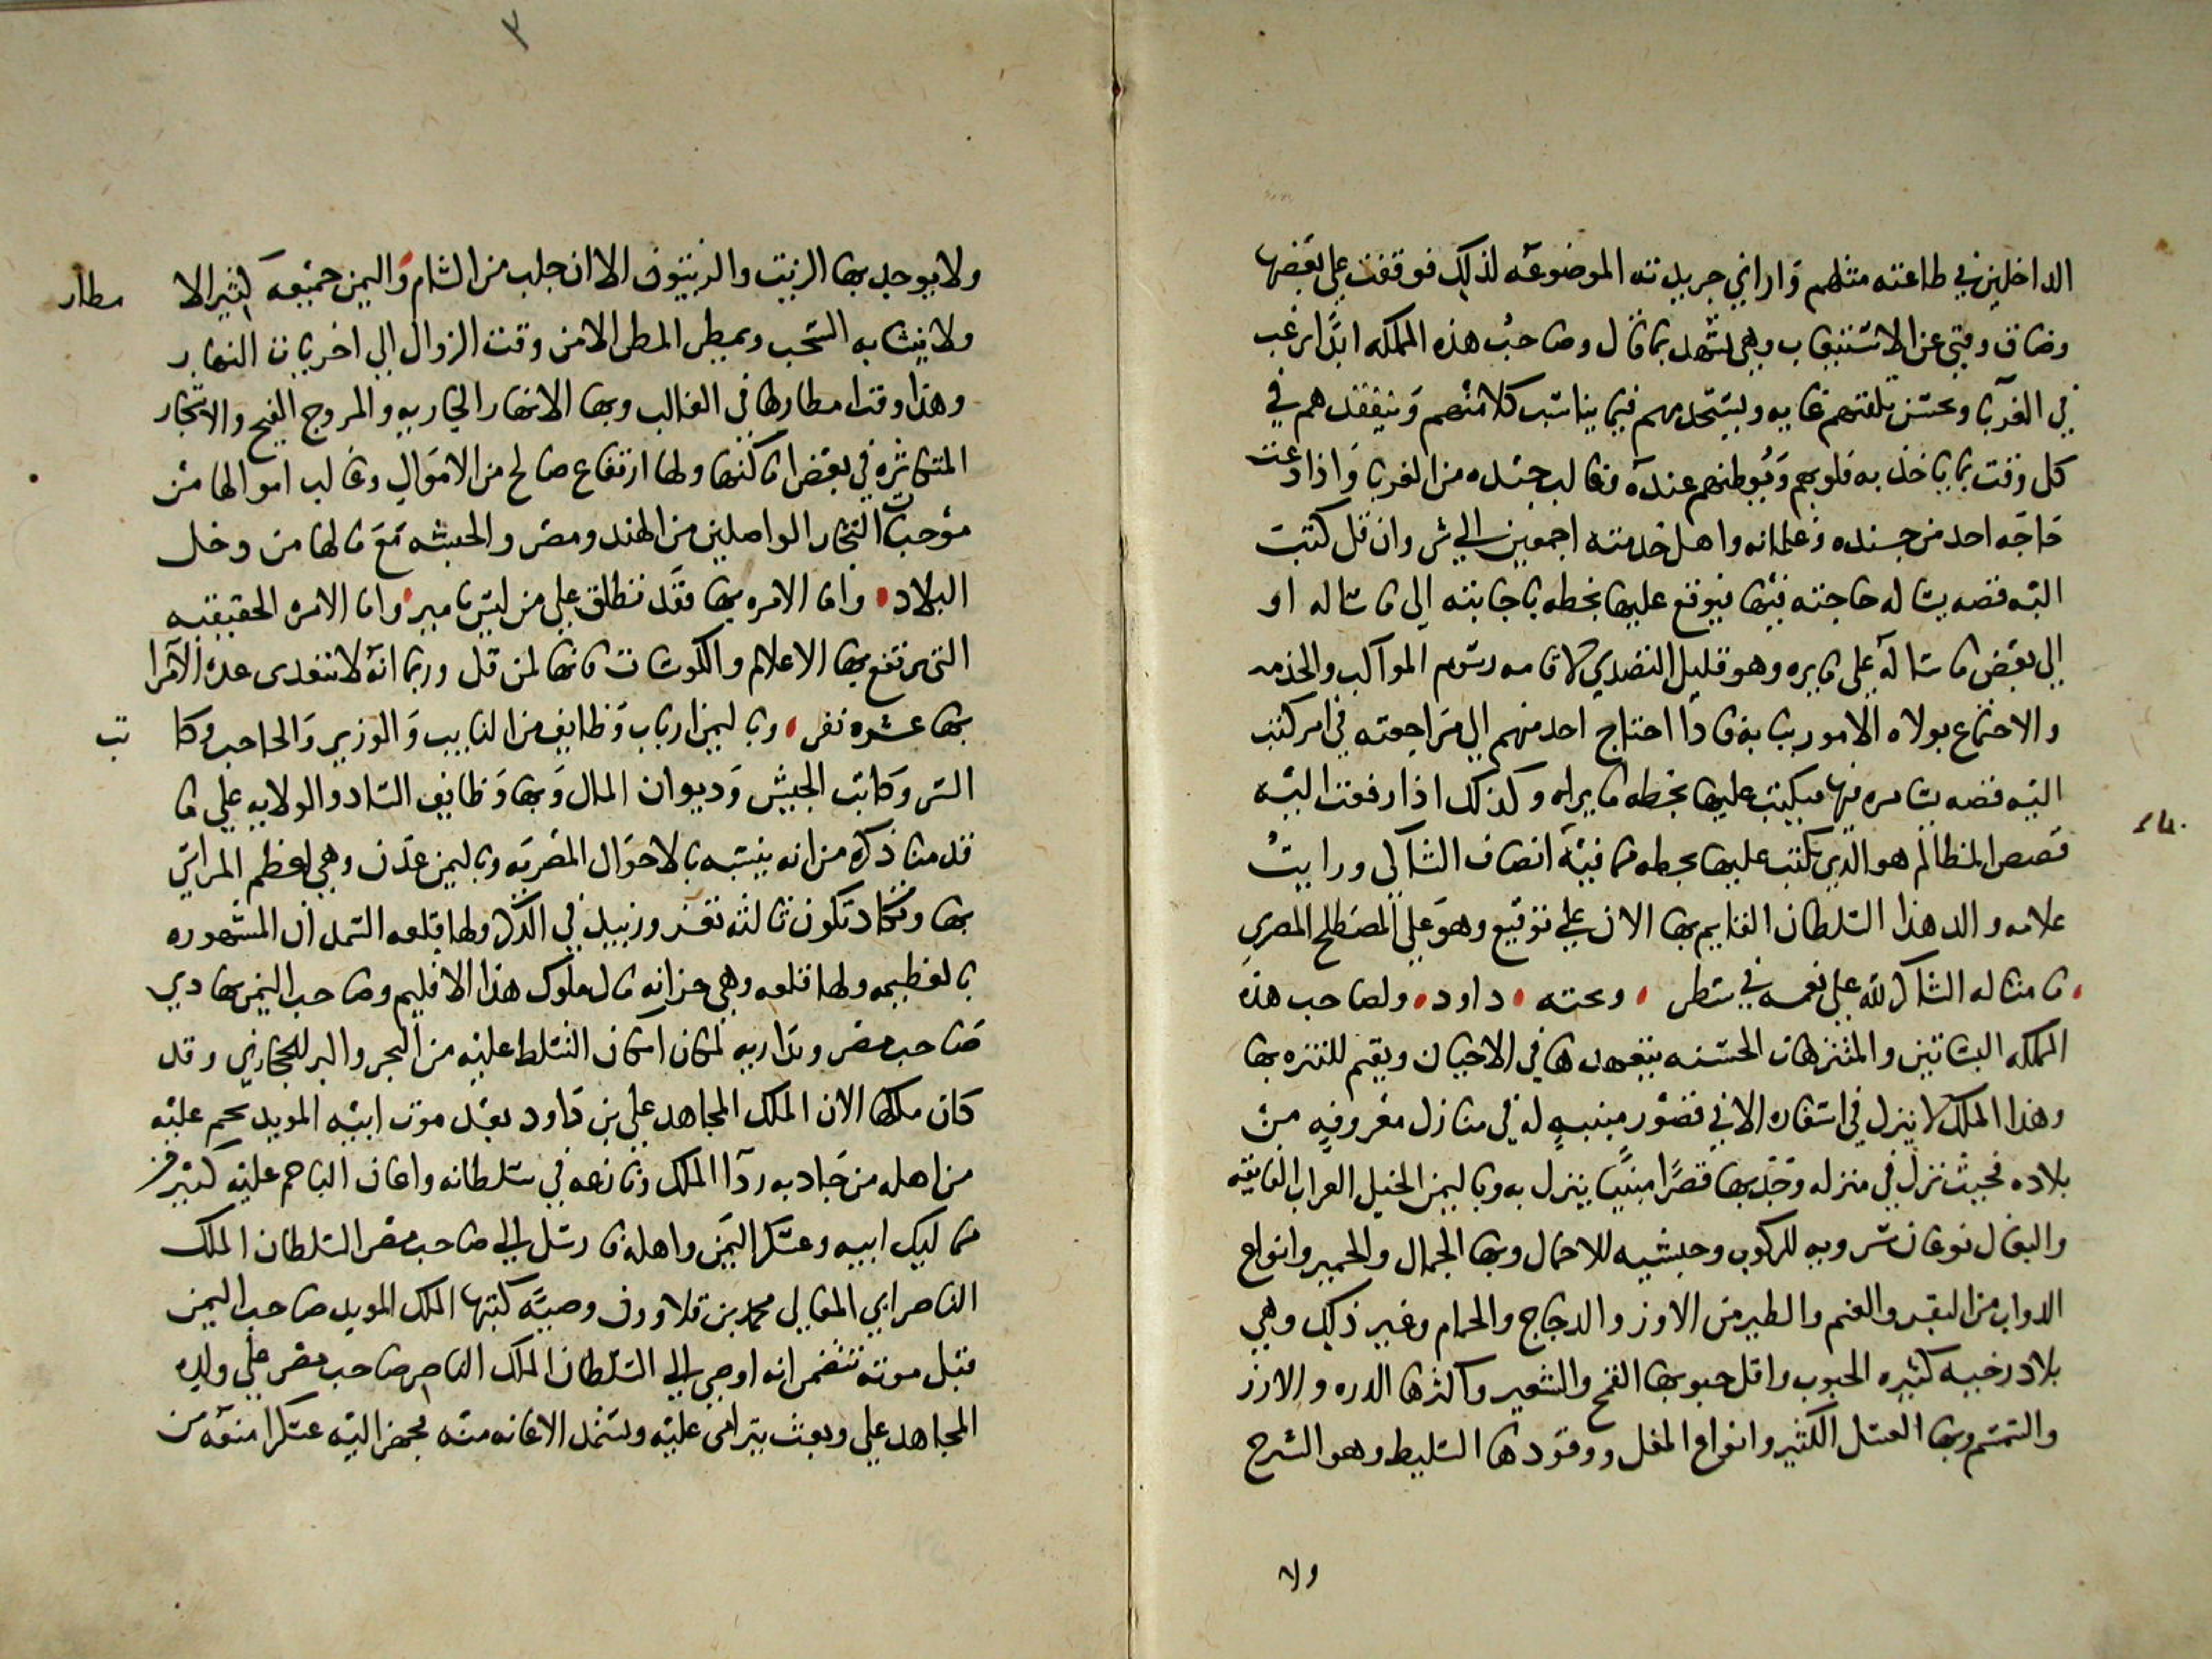 الداخلين في طاعته منهم واراني جريدته الموضوعه لذلك فوقفت على بعضها
وضاق وقتي عن الاستيعاب وهي تشهد بما قال وصاحب هذه المملكه ابدا يرغب
في الغربا ويحسن تلقيهم غايه ويستخدمهم فيما يناسب كلا منهم ويتفقدهم في
كل وقت بما ياخذ به قلوبهم ويوطنهم عنده وغالب جنده من الغربا واذا دعت
حاجه احد من جنده وغلمانه واهل خدمته اجمعين الى شي وان قل كتب
اليه قصه يساله حاجته فيها فيوقع عليها بخطه باجابته الى ما ساله او
الى بعض ما ساله على ما يره وهو قليل التصدي لاقامه رسوم المواكب والخدمه
والاجتماع بولاه الامور ببابه فاذا احتاج احد منهم الى مراجعته في امر كتب
اليه قصه يشاوره فيها فيكتب عليها بخطه ما يراه وكذلك اذا رفعت اليه
قصص المظالم هو الذي يكتب عليها بخطه بما فيه انصاف الشاكي ورايت
علامه والد هذا السلطان القايم بها الان على توقيع وهو على المصطلح المصري
ما مثاله الشاكر لله على نعمه في سطر وتحته داود ولصاحب هذه
المملكه البساتين والمتنزهات الحسنه يتعهدها في الاحيان ويقيم للتنزه بها
وهذا الملك لا ينزل في اسفاره الا في قصور مبنيه له في منازل معروفه من
بلاده فحيث نزل في منزله وجد بها قصرا مبنيا ينزل به وباليمن الخيل العراب الفايقه
والبغال نوعان سروبه للركوب وحبشيه للاحمال وبها الجمال والحمير وانواع
الدواب من البقر والغنم والطير من الاوز والدجاج والحمام وغير ذلك وهي
بلاد رخيه كثيره الحبوب واقل حبوبها القمح والشعير واكثرها الدره والارز
والسمسم وبها العسل الكثير وانواع المغل ووقودها السليط وهو الشرج
ولا
ولا يوجد بها الزيت والزيتون الا ان جلب من الشام واليمن جميعه كثير الا مطار
ولا ينشا به السحب ويمطر المطر الا من وقت الزوال الى اخريات النهار
وهذا وقت امطارها في الغالب وبها الانهار الجاريه والمروج الفيح والاشجار
المتكاثره في بعض اماكنها ولها ارتفاع صالح من الاموال وغالب اموالها من
موجبات التجار الواصلين من الهند ومصر والحبشه مع ما لها من دخل
البلاد واما الامره بها فقد تنطلق على من ليس بامير واما الامره الحقيقيه
التي ترتفع بها الاعلام والكوسات فانها لمن قل وربما انه لا تتعدى عده الامرا
بها عشره نفر وباليمن ارباب وظايف من النايب والوزير والحاجب وكا تب
السر وكاتب الجيش وديوان المال وبها وظايف الشاد والولايه على ما
قدمنا ذكره من انه يتشبه بالاحوال المصريه وباليمن عدن وهي اعظم المراسي
بها وتكاد تكون ثالثه تعز وزبيد في الذكر ولها قلعه السمدان المشهوره
بالعظيمه ولها قلعه وهي خزانه مال ملوك هذا الاقليم وصاحب اليمن يهادي
صاحب مصر ويداريه لمكان امكان التسلط عليه من البحر والبر الحجازي وقد
كان ملكها الان الملك المجاهد علي بن داود بعد موت ابيه المويد نجم عليه
من اهله من جادبه رداا الملك ونازعه في سلطانه واعان الناجم عليه كثير من
مماليك ابيه وعسكر اليمن واهله فارسل الى صاحب مصر السلطان الملك
الناصر ابي المعالي محمد بن قلاوون وصيه كتبها الملك المويد صاحب اليمن
قبل موته تتضمن انه اوصى الى السلطان الملك الناصر صاحب مصر على ولده
المجاهد علي وبعث يترامى عليه ويستمد الاعانه منه فجهز اليه عسكرا منعه من